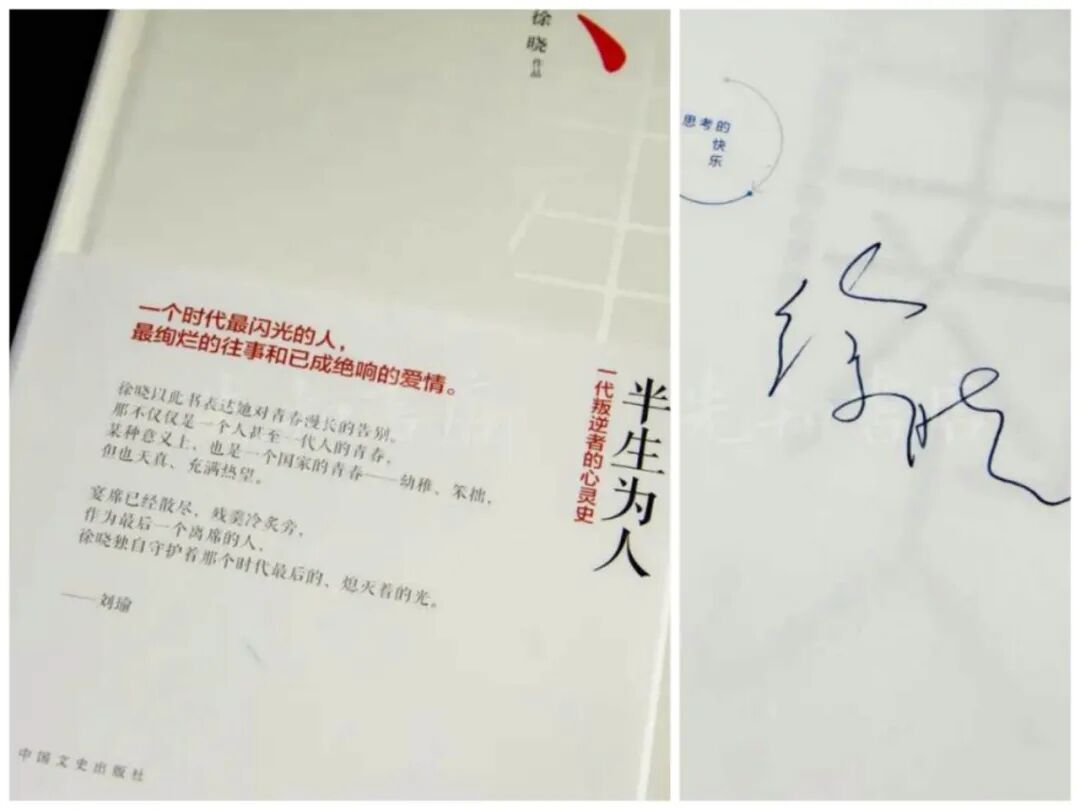 徐晓作品
一个时代最闪光的人，
最绚烂的往事和已成绝响的爱情。
徐晓以此书表达她对青春漫长的告别。
那不仅仅是一个人甚至一代人的青春，
某种意义上，也是一个国家的青春——幼稚、笨拙，
但也天真、充满热望。
宴席已经散尽，残羹冷炙旁，
作为最后一个离席的人，
徐晓独自守护着那个时代最后的、熄灭着的光。
——刘瑜
半生为人
一代叛逆者的心灵史
中国文史出版社
思考的
快
乐
徐晓